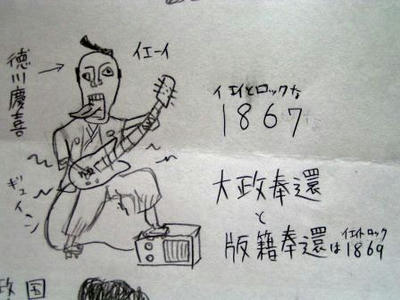 徳川慶喜
イエーイ
ギュイーン
イエイとロックな
1867
大政奉還
と
イエイトロック
版籍奉還は1869
国